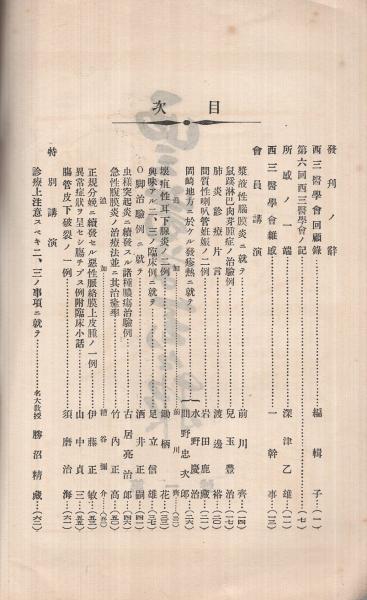 目次
發刊ノ辭
西三醫學會回顧錄 編輯子 (一)
第六回西三醫學會ノ記 (七)
所感ノ一端 深津乙雄 (一二)
西三醫學會雜感 一幹事 (一三)
會員講演
漿液性腦膜炎ニ就テ 前川齊 (一四)
鼠蹊淋巴肉芽腫症ノ治驗例 兒玉豐治 (一七)
肺炎診療片言 渡邊裕 (二〇)
間質性喇叭管妊娠ノ二例 岩田鹿藏 (二一)
岡崎地方ニ於ケル發疹熱ニ就テ 水野慶治 間野忠次郎 (二六)
追加 前川齊
壞疽性耳下腺炎ノ二例 鋤柄花 (三〇)
興味アル二、三ノ臨床例ニ就テ 足立信雄 (三七)
O脚治驗例ニ就テ 酒井正嗣 (四一)
虫樣突起炎ニ續發スル諸種膿瘍治驗例 古居亮治郎 (四六)
急性腹膜炎ノ治療法並ニ其治療學 竹內正高 (五〇)
追加 糟谷彌介
正規分娩ニ續發セル惡性脈絡膜上皮腫ノ一例 伊藤正敏 (五三)
異常症狀ヲ呈セシ腸チブス例附臨床小話 山中貞三 (五五)
腸管皮下破裂ノ一例 須磨治海 (六一)
特別講演
診療上注意スベキ二、三ノ事項ニ就テ 名大教授 勝沼精藏 (六二)